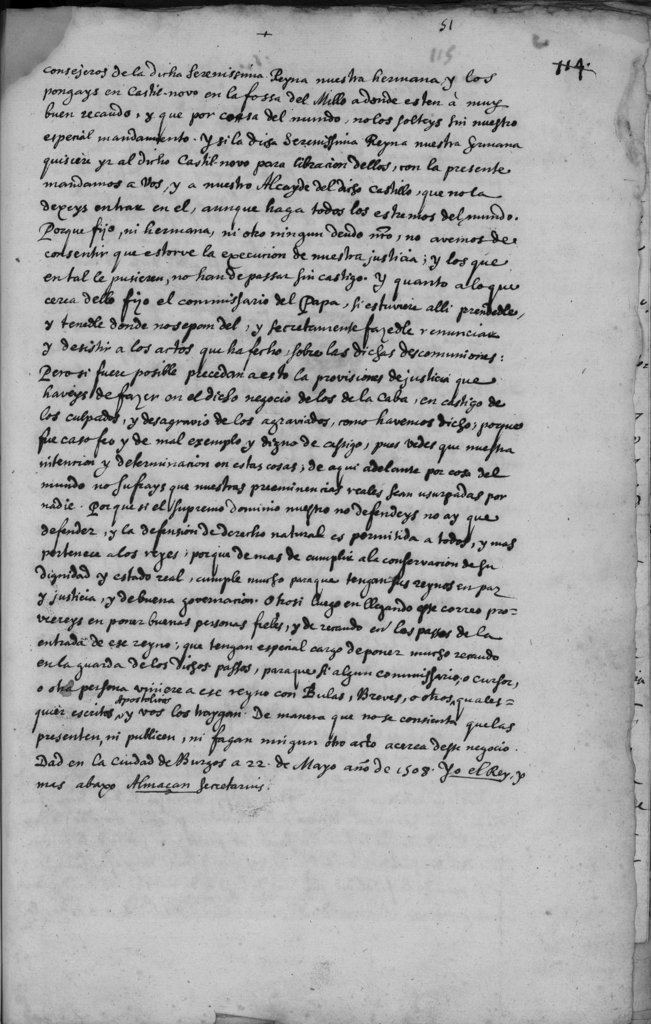 51
115
114.
consejeros de la dicha Serenissima Reyna nuestra hermana, y los
pongays en Castil-novo en la fossa del Millo adonde esten à muy
buen recaudo, y que por cosa del mundo, no los solteys sin nuestro
especial mandamiento. Y si la dicha Serenissima Reyna nuestra hermana
quisiere yr al dicho Castil-novo para libracion dellos, con la presente
mandamos a vos, y a nuestro Alcayde del dicho Castillo, que no la
dexeys entrar en el, aunque haga todos los estremos del mundo.
Porque fijo, ni hermana, ni otro ningun deudo nro, no avemos de
consentir que estorve la execucion de nuestra justicia; y los que
en tal le pusieren, no han de passar sin castigo. Y quanto a lo que
cerca dello fijo el commissario del Papa, si estuviere alli prendedle,
y tenedle donde no sepan del, y secretamente fazedle renunciar
y desistir a los actos que ha fecho, sobre las dichas descomuniones:
Pero si fuere posible precedan a esto la provisiones de justicia que
haveys de fazer en el dicho negocio de los de la Caba, en castigo de
los culpados, y desagravio de los agraviados, como havemos dicho; porque
fue caso feo y de mal exemplo y digno de castigo, pues vedes que nuestra
intencion y determinacion en estas cosas; de aqui adelante por cosa del
mundo no sufrays que nuestras preeminencias reales sean usurpadas por
nadie. Porque si el supremo dominio nuestro no defendeys no ay que
defender, y la defension de derecho natural es permitida a todos, y mas
pertenece a los reyes; porque de mas de cumplir a la conservacion de su
dignidad y estado real, cumple mucho para que tengan sus reynos en paz
y justicia, y de buena governacion. Otrosi luego en llegando este correo pro=
vereys en poner buenas personas fieles, y de recaudo en los passos de la
entrada de ese reyno; que tengan especial cargo de poner mucho recaudo
en la guarda de los dichos passos, para que si algun commissario, o cursor,
o otra persona viniere a ese reyno con Bulas, Breves, o otros quales=
quier escritos Apostolicos y vos los traygan. De manera que no se consienta que las
presenten, ni publicen, ni fagan ningun otro acto acerca desse negocio.
Dad en la ciudad de Burgos a 22. de Mayo año de 1508. Yo el Rey, y
mas abaxo Almaçan secretarius.